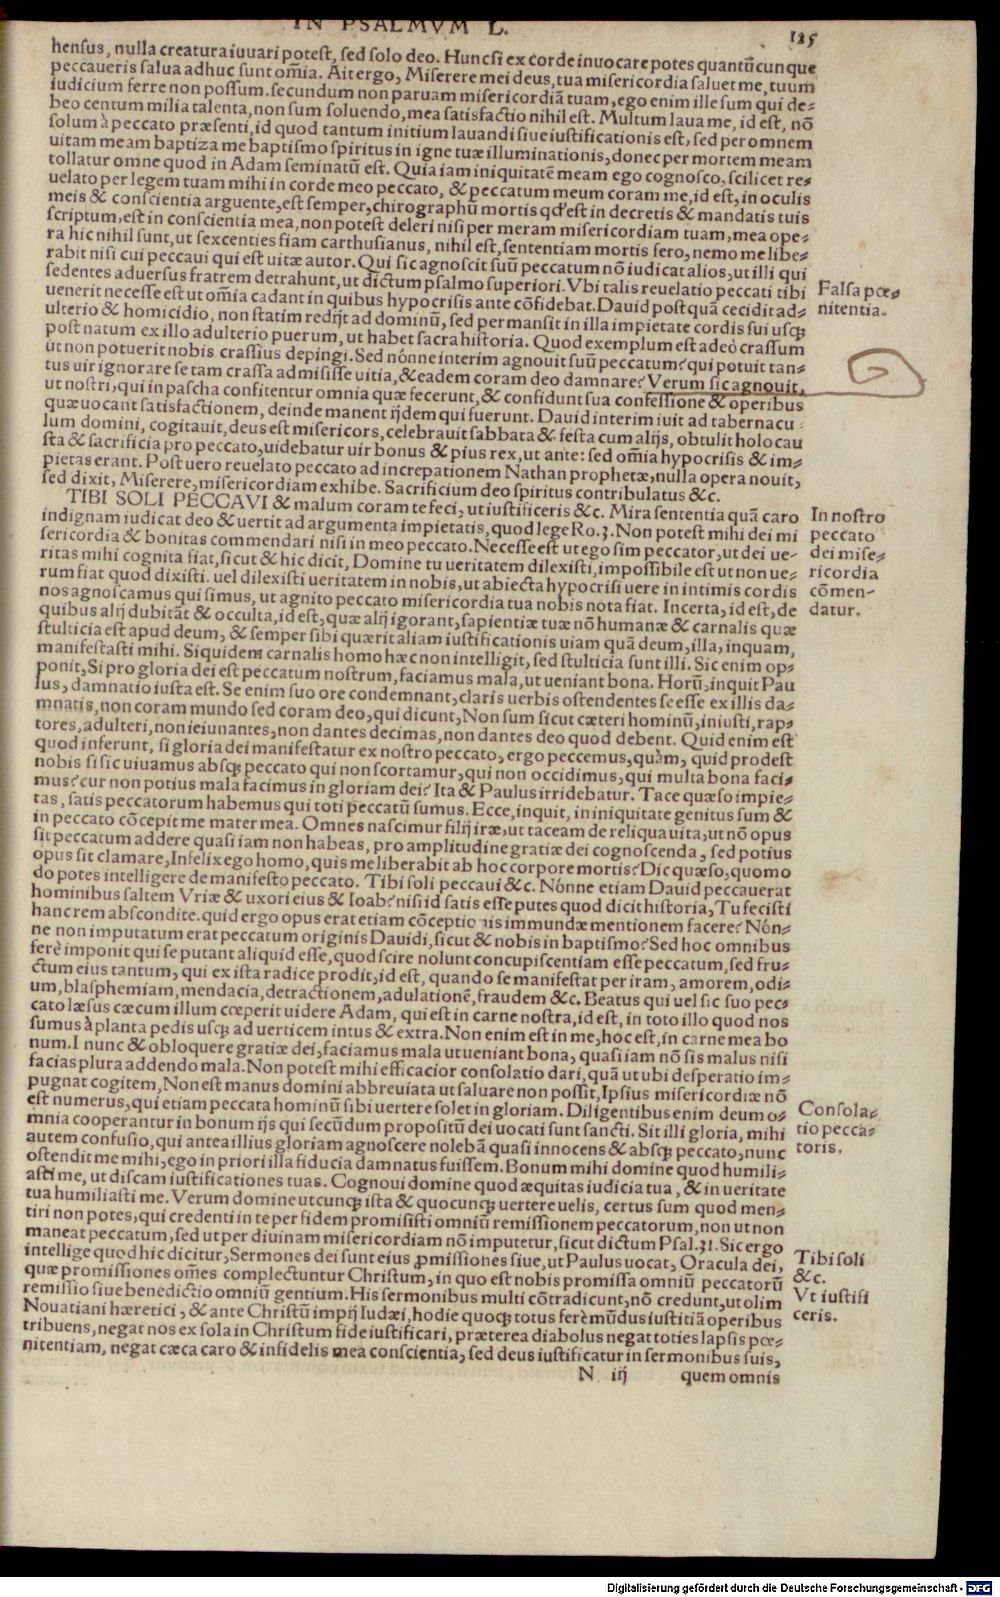 IN PSALMVM L. 125
hensus, nulla creatura iuuari potest, sed solo deo. Huncsi ex corde inuocare potes quantũcunque
peccaueris salua adhuc sunt om̃ia. Ait ergo, Miserere mei deus, tua misericordia saluet me, tuum
iudicium ferre non possum. secundum non paruam misericordiã tuam, ego enim ille sum qui de⸗
beo centum milia talenta, non sum soluendo, mea satisfactio nihil est. Multum laua me, id est, nõ
solum à peccato præsenti, id quod tantum initium lauandi siue iustificationis est, sed per omnem
uitam meam baptiza me baptismo spiritus in igne tuæ illuminationis, donec per mortem meam
tollatur omne quod in Adam seminatũ est. Quia iam iniquitatẽ meam ego cognosco, scilicet re⸗
uelato per legem tuam mihi in corde meo peccato, & peccatum meum coram me, id est, in oculis
meis & conscientia arguente, est semper, chirographũ mortis qd' est in decretis & mandatis tuis
scriptum, est in conscientia mea, non potest deleri nisi per meram misericordiam tuam, mea ope⸗
ra hic nihil sunt, ut sexcenties fiam carthusianus, nihil est, sententiam mortis fero, nemo me libe⸗
rabit nisi cui peccaui qui est uitæ autor. Qui sic agnoscit suũ peccatum nõ iudicat alios, ut illi qui
sedentes aduersus fratrem detrahunt, ut dictum psalmo superiori. Vbi talis reuelatio peccati tibi
uenerit necesse est ut om̃ia cadant in quibus hypocrisis ante cõfidebat. Dauid postquã cecidit ad⸗
ulterio & homicidio, non statim redijt ad dominũ, sed permansit in illa impietate cordis sui usq;
post natum ex illo adulterio puerum, ut habet sacra historia. Quod exemplum est adeò crassum
ut non potuerit nobis crassius depingi. Sed nónne interim agnouit suũ peccatum? qui potuit tan⸗
tus uir ignorare se tam crassa admisisse uitia, & eadem coram deo damnare? Verum sic agnouit,
ut nostri, qui in pascha confitentur omnia quæ fecerunt, & confidunt sua confessione & operibus
quæ uocant satisfactionem, deinde manent ijdem qui fuerunt. Dauid interim iuit ad tabernacu⸗
lum domini, cogitauit, deus est misericors, celebrauit sabbata & festa cum alijs, obtulit holocau
sta & sacrificia pro peccato, uidebatur uir bonus & pius rex, ut ante: sed om̃ia hypocrisis & im⸗
pietas erant. Post uero reuelato peccato ad increpationem Nathan prophetæ, nulla opera nouit,
sed dixit, Miserere, misericordiam exhibe. Sacrificium deo spiritus contribulatus &c.
Falsa pœ⸗
nitentia.
TIBI SOLI PECCAVI & malum coram te feci, ut iustificeris &c. Mira sententia quã caro
indignam iudicat deo & uertit ad argumenta impietatis, quod lege Ro. 3. Non potest mihi dei mi
sericordia & bonitas commendari nisi in meo peccato. Necesse est ut ego sim peccator, ut dei ue⸗
ritas mihi cognita fiat, sicut & hic dicit, Domine tu ueritatem dilexisti, impossibile est ut non ue⸗
rum fiat quod dixisti. uel dilexisti ueritatem in nobis, ut abiecta hypocrisi uere in intimis cordis
nos agnoscamus qui simus, ut agnito peccato misericordia tua nobis nota fiat. Incerta, id est, de
quibus alij dubitãt & occulta, id est, quæ alij igorant, sapientiæ tuæ nõ humanæ & carnalis quæ
stulticia est apud deum, & semper sibi quærit aliam iustificationis uiam quã deum, illa, inquam,
manifestasti mihi. Siquidem carnalis homo hæc non intelligit, sed stulticia sunt illi. Sic enim op⸗
ponit, Si pro gloria dei est peccatum nostrum, faciamus mala, ut ueniant bona. Horũ, inquit Pau
lus, damnatio iusta est. Se enim suo ore condemnant, claris uerbis ostendentes se esse ex illis da⸗
mnatis, non coram mundo sed coram deo, qui dicunt, Non sum sicut cæteri hominũ, iniusti, rap⸗
tores, adulteri, non ieiunantes, non dantes decimas, non dantes deo quod debent. Quid enim est
quod inferunt, si gloria dei manifestatur ex nostro peccato, ergo peccemus, quàm, quid prodest
nobis si sic uiuamus absq; peccato qui non scortamur, qui non occidimus, qui multa bona faci⸗
mus? cur non potius mala facimus in gloriam dei? Ita & Paulus irridebatur. Tace quæso impie⸗
tas, satis peccatorum habemus qui toti peccatũ sumus. Ecce, inquit, in iniquitate genitus sum &
in peccato cõcepit me mater mea. Omnes nascimur filij iræ, ut taceam de reliqua uita, ut nõ opus
sit peccatum addere quasi iam non habeas, pro amplitudine gratiæ dei cognoscenda, sed potius
opus sit clamare, Infelix ego homo, quis me liberabit ab hoc corpore mortis? Dic quæso, quomo
do potes intelligere de manifesto peccato. Tibi soli peccaui &c. Nónne etiam Dauid peccauerat
hominibus saltem Vriæ & uxori eius & Ioab? nisi id satis esse putes quod dicit historia, Tu fecisti
hanc rem abscondite. quid ergo opus erat etiam cõceptionis immundæ mentionem facere? Nón⸗
ne non imputatum erat peccatum originis Dauidi, sicut & nobis in baptismo? Sed hoc omnibus
ferè imponit qui se putant aliquid esse, quod scire nolunt concupiscentiam esse peccatum, sed fru⸗
ctum eius tantum, qui ex ista radice prodit, id est, quando se manifestat per iram, amorem, odi⸗
um, blasphemiam, mendacia, detractionem, adulationẽ, fraudem &c. Beatus qui uel sic suo pec⸗
cato læsus cæcum illum cœperit uidere Adam, qui est in carne nostra, id est, in toto illo quod nos
sumus à planta pedis usq; ad uerticem intus & extra. Non enim est in me, hoc est, in carne mea bo
num. I nunc & obloquere gratiæ dei, faciamus mala ut ueniant bona, quasi iam nõ sis malus nisi
facias plura addendo mala. Non potest mihi efficacior consolatio dari, quã ut ubi desperatio im⸗
pugnat cogitem, Non est manus domini abbreuiata ut saluare non possit, Ipsius misericordiæ nõ
est numerus, qui etiam peccata hominũ sibi uertere solet in gloriam. Diligentibus enim deum o⸗
mnia cooperantur in bonum ijs qui secũdum propositũ dei uocati sunt sancti. Sit illi gloria, mihi
autem confusio, qui antea illius gloriam agnoscere nolebã quasi innocens & absq; peccato, nunc
ostendit me mihi, ego in priori illa fiducia damnatus fuissem. Bonum mihi domine quod humili⸗
asti me, ut discam iustificationes tuas. Cognoui domine quod æquitas iudicia tua, & in ueritate
tua humiliasti me. Verum domine utcunq; ista & quocunq; uertere uelis, certus sum quod men⸗
tiri non potes, qui credenti in te per fidem promisisti omniũ remissionem peccatorum, non ut non
maneat peccatum, sed ut per diuinam misericordiam nõ imputetur, sicut dictum Psal. 31. Sic ergo
intellige quod hic dicitur, Sermones dei sunt eius ꝓmissiones siue, ut Paulus uocat, Oracula dei,
quæ promissiones om̃es complectuntur Christum, in quo est nobis promissa omniũ peccatorũ
remissio siue benedictio omniũ gentium. His sermonibus multi cõtradicunt, nõ credunt, ut olim
Nouatiani hæretici, & ante Christũ impij Iudæi, hodie quoq; totus ferè mũdus iustitiã operibus
tribuens, negat nos ex sola in Christum fide iustificari, præterea diabolus negat toties lapsis pœ⸗
nitentiam, negat cæca caro & infidelis mea conscientia, sed deus iustificatur in sermonibus suis,
In nostro
peccato
dei mise⸗
ricordia
cõmen-
datur.
Consola⸗
tio pecca⸗
toris.
Tibi soli
&c.
Vt iustifi
ceris.
N iij quem omnis
Digitalisierung gefördert durch die Deutsche Forschungsgemeinschaft - DFG